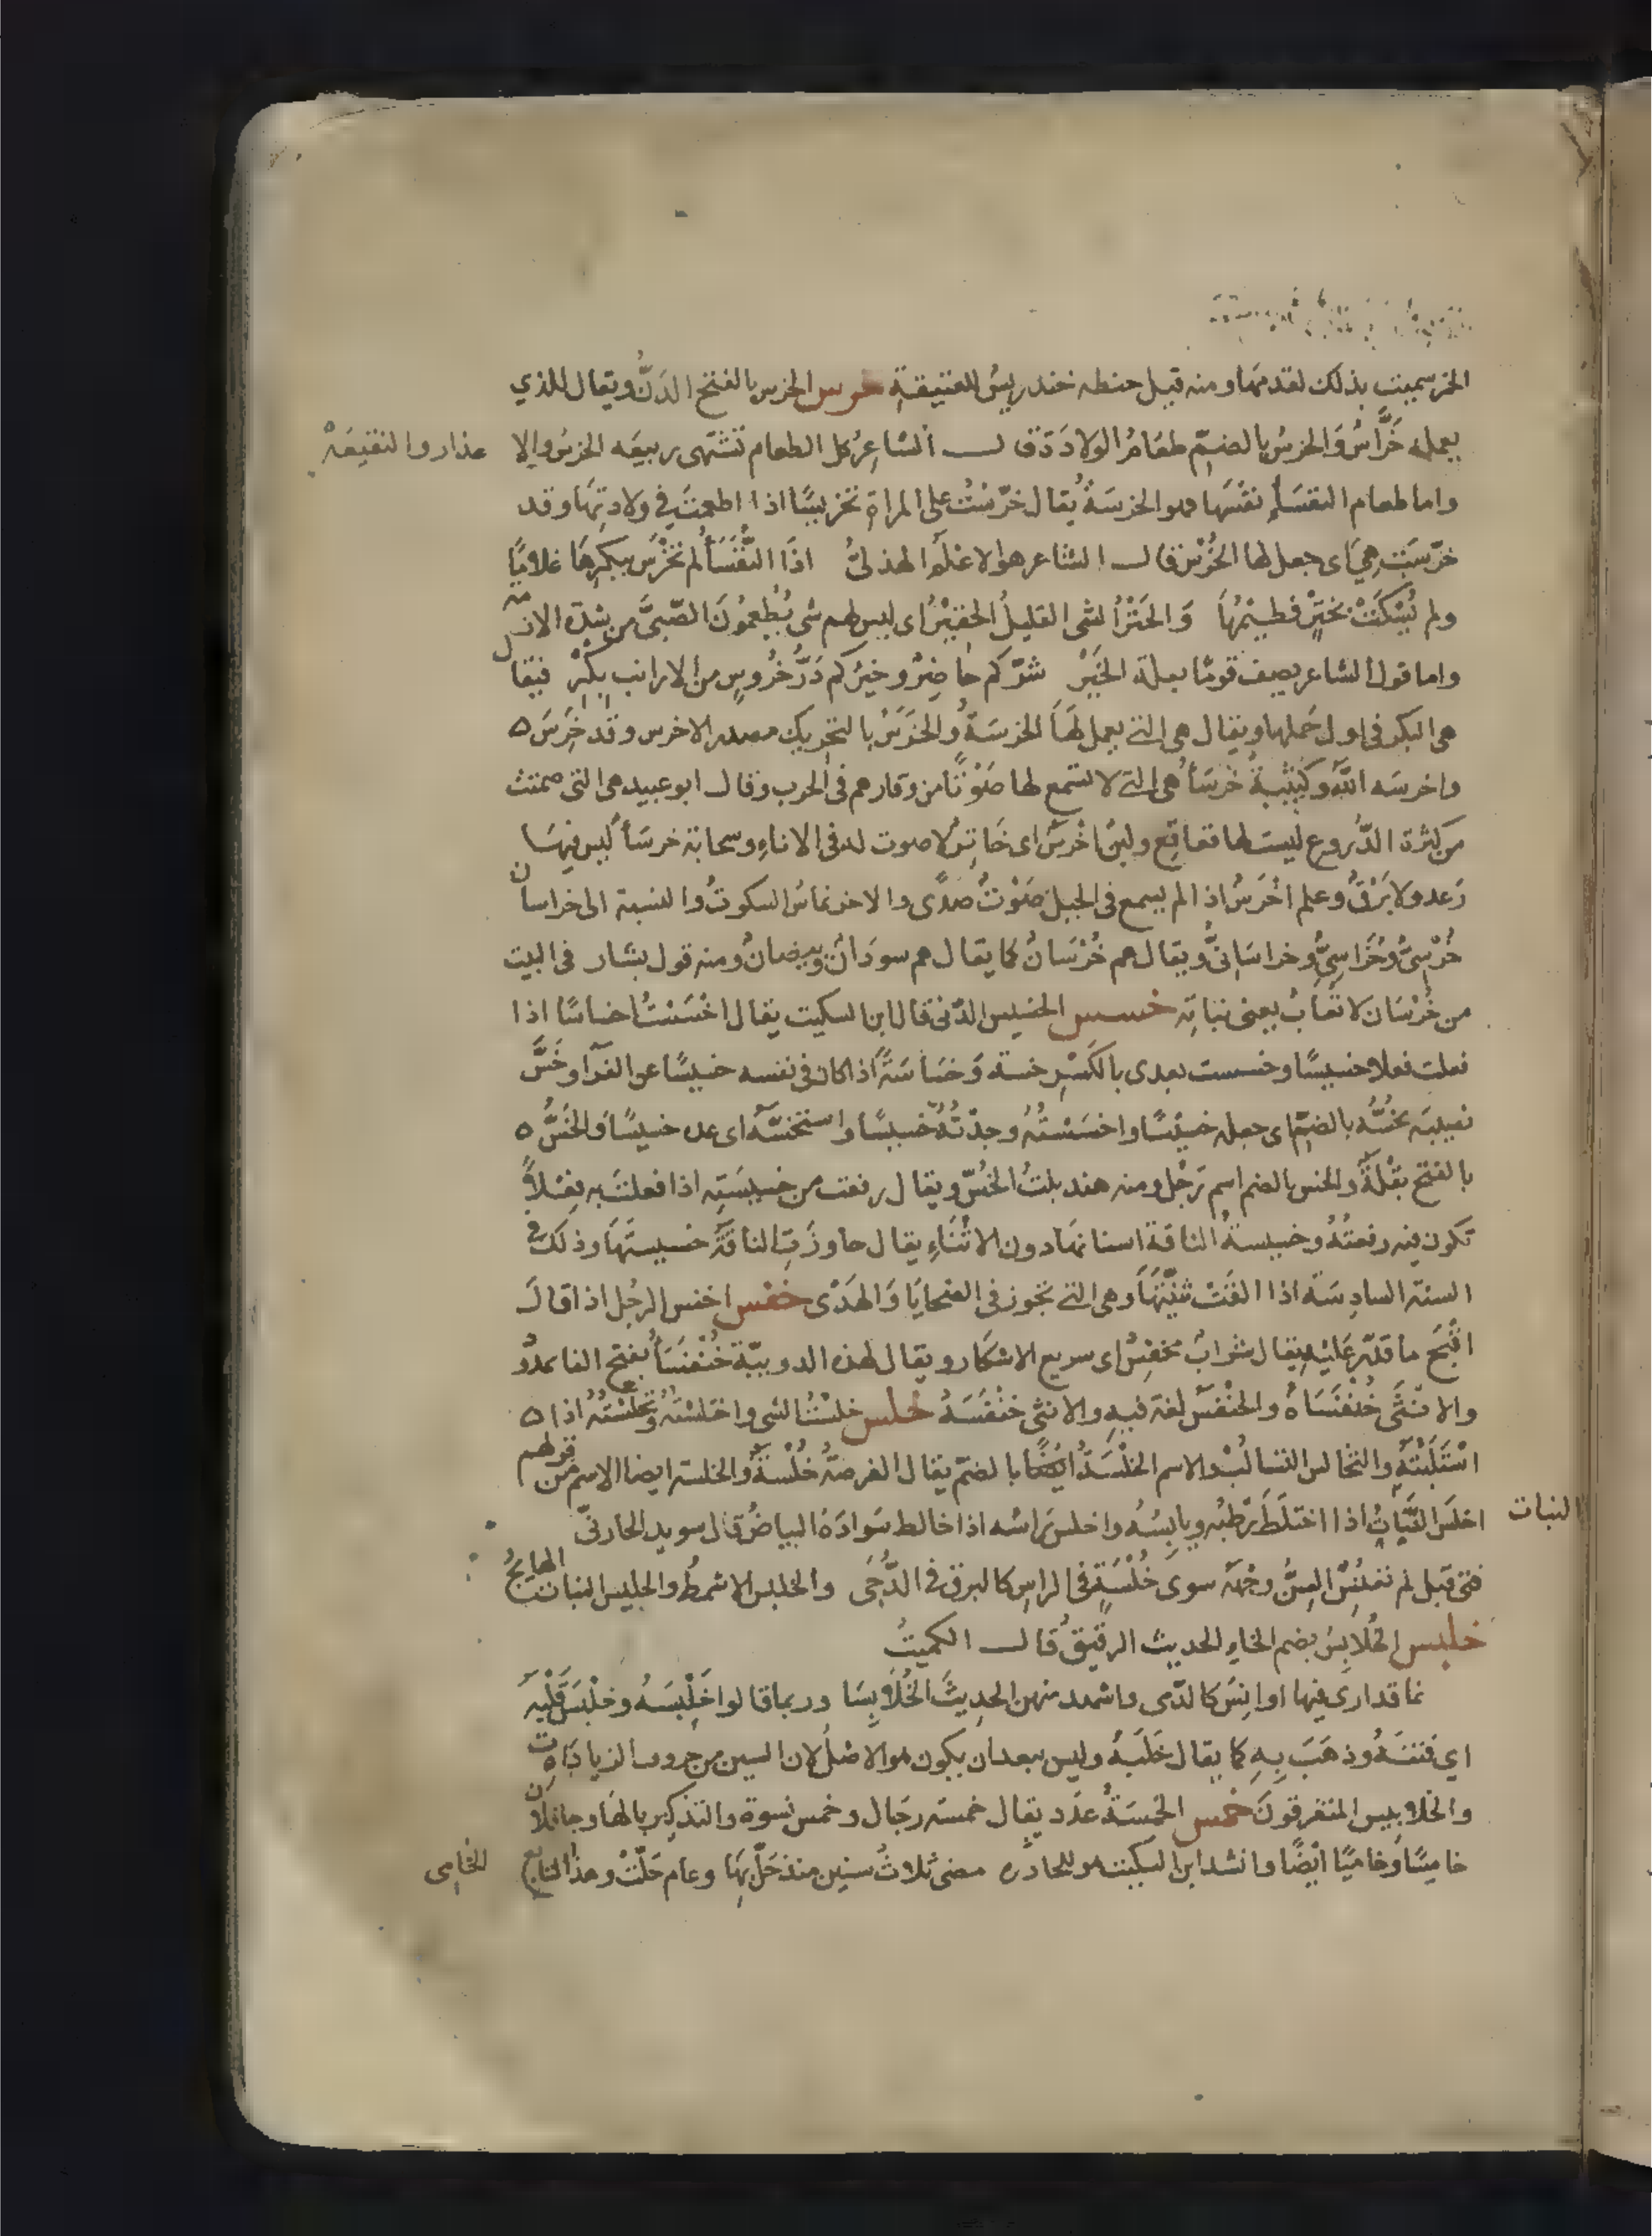 الخمر سميت بذلك لقدمها ومنه قيل حنطه خندريسُ للعتيقةِ خرس الخرس بالفتح الدَنُّ ويقال للذي
يعمله خَرَّاسُ وَالخرسُ بالضمّ طعَامُ الولادَة قـــال الشاعرُ كل الطعام تشتهى ربيعَه الخرسُ والا عذار والنقيعَةْ
واما طعام النفسَأِ نفْسَها فهو الخرسَةُ يُقال خرّسْتُ على المراة تخريسًا اذا اطعمتَ في ولادتِهَا وقد
خرّسَتْ هِيَ اى جعل لها الخُرْسُ قالـــ الشاعر هو الاعْلَمُ الهذلىُّ اذَا النُّفَسَأُ لم تخَرَّس ببكرِهَا غلامًا
ولم يُسْكَتْ بحَتْرٍ فطيمُهَا وَالحَتْرُ الشى القليلُ الحقيْرُ اى ليس لهم شى يُطْعِمُونَ الصّبىَّ من شدّة الازمه
واما قول الشاعر يصف قومًا بقلة الخَيْر شرّكم حاضِرٌ وخيْرُكم دَرُّ خرُوسٍ من الارانب بِكْرْ فيقال
هى البكر فى اول حَملها ويقال هى التے يعمل لهَا الخرسَةُ والخَرَسُ بالتحريك مصدر الاخرس وقد خَرِسَ ه
واخرسَه اللهُ وكتيْبةٌ خرسَأُ هى التے لا تسمع لها صَوْتًا من وقارهم فى الحرب وقالـ ابو عبيد هى التى صمتت
من كثرة الدّروع ليست لها قعاقع ولبنٌ اخْرَسُ اى خَاثِرٌ لا صوت له فى الاناءِ وسحابة خرسَأُ ليس فيهَا
رَعد ولا بَرْقٌ وعلم اخْرَسُ اذا لم يسمع فى الجبل صَوْتُ صدًى والاخرنماسُ السكوتُ والنسبة الى خراسان
خُرْسِىُّ وخُرَاسِىُّ وخراسَانىُّ ويقال هم خُرْسَانٌ كما يقال هم سودَانٌ وبيضانٌ ومنه قول بشار فى البيت
من خُرْسَان لا تُعابُ يعنى بناته خسس الخسيس الدّنى قال ابن السكيت يقال اخْسَسْتُ اخساسًا اذا
فعلت فعلا خسيسًا وخسست بعدى بالكَسْرِ خسة وَخسَاسَةً اذا كان فى نفسه خسيسًا عن الفرّا وخَسَّ
نصيبَه يخُسُّه بالضمّ اى جعله خسيْسًا واخسَسْتُهُ وجدْتُهُ خسيسًا واستخسّهُ اى عده خسيسًا وَالخَسُّ ه
بالفتح بَقْلَةٌ والخس بالضم اسم رَجُل ومنه هند بنتُ الخُسّ ويقال رفعت من خسِيسَتِه اذا فعلتَ به فِعْلًا
تكون فيه رفعتُهُ وخسيسةُ الناقة اسنانهَا دون الاثْنَاءِ يقال جاوزَتِ الناقةُ خسيستهَا وذلك فى
السنة السادسَة اذا القَتْ ثنِيّتَهَا وهى التے تجوز فى الضحايَا وَالهَدْى خفس اخفس الرجل اذا قالَ
اقْبَحَ ما قدَرَ عَليْهِ يقال شرابٌ مخفِسٌ اى سريع الاسْكار ويقال لهذه الدويبّة خُنْفَسَأُ بفتح الفا ممدُود
والانثَى خُنْفَسَاةٌ والخُنْفَسُ لغة فيه والانثى خنْفَسَةُ خلس خلسْتُ الشى واختلسْتُهُ وتخلّسْتُه اذا ه
اسْتَلَبْتَه والتخالس التسالُبُ والاسم الخُلْسَةُ ايضًا بالضمّ يقال الفرصَةُ خُلْسَةٌ والخلسة ايضا الاسم من قولهم
اخلسَ النَّبَاتُ اذا اختلَطَ رَطْبُه ويابِسُهُ واخلس رَاسُه اذا خالط سَوادَهُ البياضُ قال سويد الحارثىّ النبات
فتى قبل لم تعْنِسِ السِنُّ وجْهَهُ سوى خُلْسَةٍ فى الراس كالبرق فى الدُّجَى والخلس الاشمطُ والخليس النبات الهايجُ
خلبس الخُلابِسُ بضم الخاءِ الحديث الرقيقُ قالـــ الكميتُ
بما قد ارى فيها اوانِسَ كالدّمى واشهد منهن الحدِيثَ الخُلَابِسَا وربما قالوا خَلْبَسَهُ وخلْبَسَ قَلْبَهُ
اي فتنَهُ وذهَبَ بِهِ كما يقال خَلَبَهُ وليس يبعد ان يكون هو الاصْلُ لان السين من حروف الزيادَات
والخلابيس المتفرقونَ خمس الخَمسَةُ عدَد يقال خمسة رجَال وخمس نسوة والتذكير بالهَا وجا فلان
خامِسًا وَخامِيًا ايْضًا وانشد ابن السكيت للحادرة مضى ثلاثُ سنين منذ حَلّ بهَا وعام حَلّتْ وهذا التابع الخامى